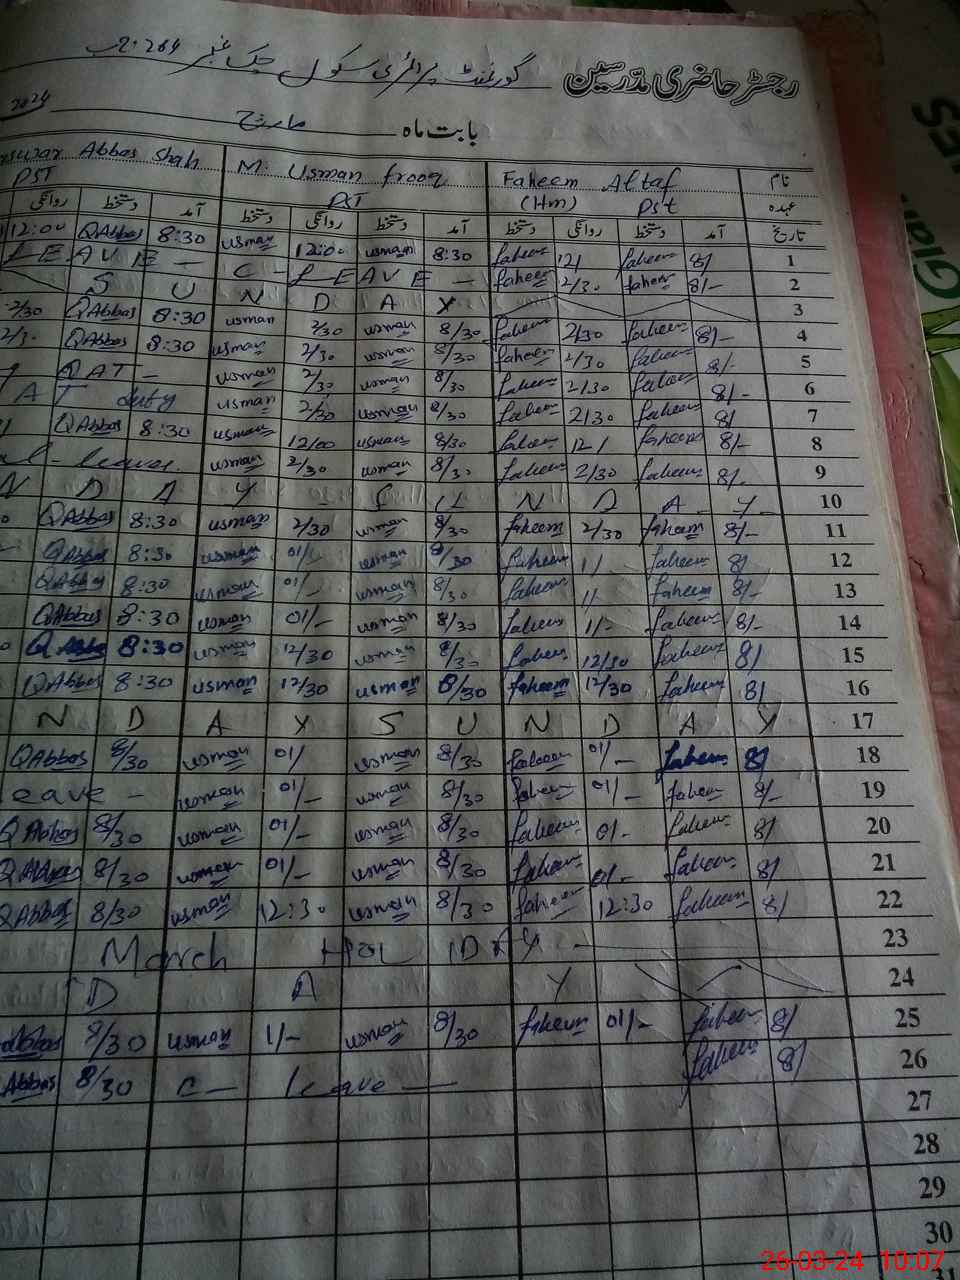 رجسٹر حاضری مدرسین گورنمنٹ پرائمری سکول چک نمبر 264
بابت ماہ مارچ 2024
نام Faheem Altaf M. Usman frooq Abbas Shah
عہدہ (Hm) Pst PST PST
تاریخ آمد دستخط روانگی دستخط آمد دستخط روانگی دستخط آمد دستخط روانگی
1 8/ faheem 12/ faheem 8:30 usman 12:00 usman 8:30 QAbbas 12:00
2 8/- faheem 2/30 faheem C- LEAVE - LEAVE -
3 S U N D A Y
4 8/- faheem 2/30 faheem 8/30 usman 2/30 usman 8:30 QAbbas 2/30
5 8/- faheem 2/30 faheem 8/30 usman 2/30 usman 8:30 QAbbas
6 8/- faheem 2/30 faheem 8/30 usman 2/30 usman QAT -
7 8/ faheem 2/30 faheem 8/30 usman 2/30 usman AT duty
8 8/- faheem 12/ faheem 8/30 usman 12/00 usman 8:30 QAbbas
9 8/- faheem 2/30 faheem 8/30 usman 2/30 usman leave.
10 N D A Y S U N D A Y
11 8/- faheem 2/30 faheem 8/30 usman 2/30 usman 8:30 QAbbas
12 8/ faheem 1/ faheem 8/30 usman 01/- usman 8:30 QAbbas
13 8/- faheem 1/- faheem 8/30 usman 01/- usman 8:30 QAbbas
14 8/- faheem 1/- faheem 8/30 usman 01/- usman 8:30 QAbbas
15 8/ faheem 12/30 faheem 8/30 usman 12/30 usman 8:30 QAbbas
16 8/ faheem 12/30 faheem 8/30 usman 12/30 usman 8:30 QAbbas
17 N D A Y S U N D A Y
18 8/ faheem 01/- faheem 8/30 usman 01/- usman 8/30 QAbbas
19 8/- faheem 01/- faheem 8/30 usman 01/- usman eave -
20 8/ faheem 01- faheem 8/30 usman 01/- usman 8/30 QAbbas
21 8/ faheem 01- faheem 8/30 usman 01/- usman 8/30 QAbbas
22 8/ faheem 12:30 faheem 8/30 usman 12:30 usman 8/30 QAbbas
23 March HOLIDAY -
24 D A Y
25 8/ faheem 01/- faheem 8/30 usman 1/- usman 8/30 Abbas
26 8/ faheem C- leave - 8/30 Abbas
27
28
29
30
31
26-03-24 10:07